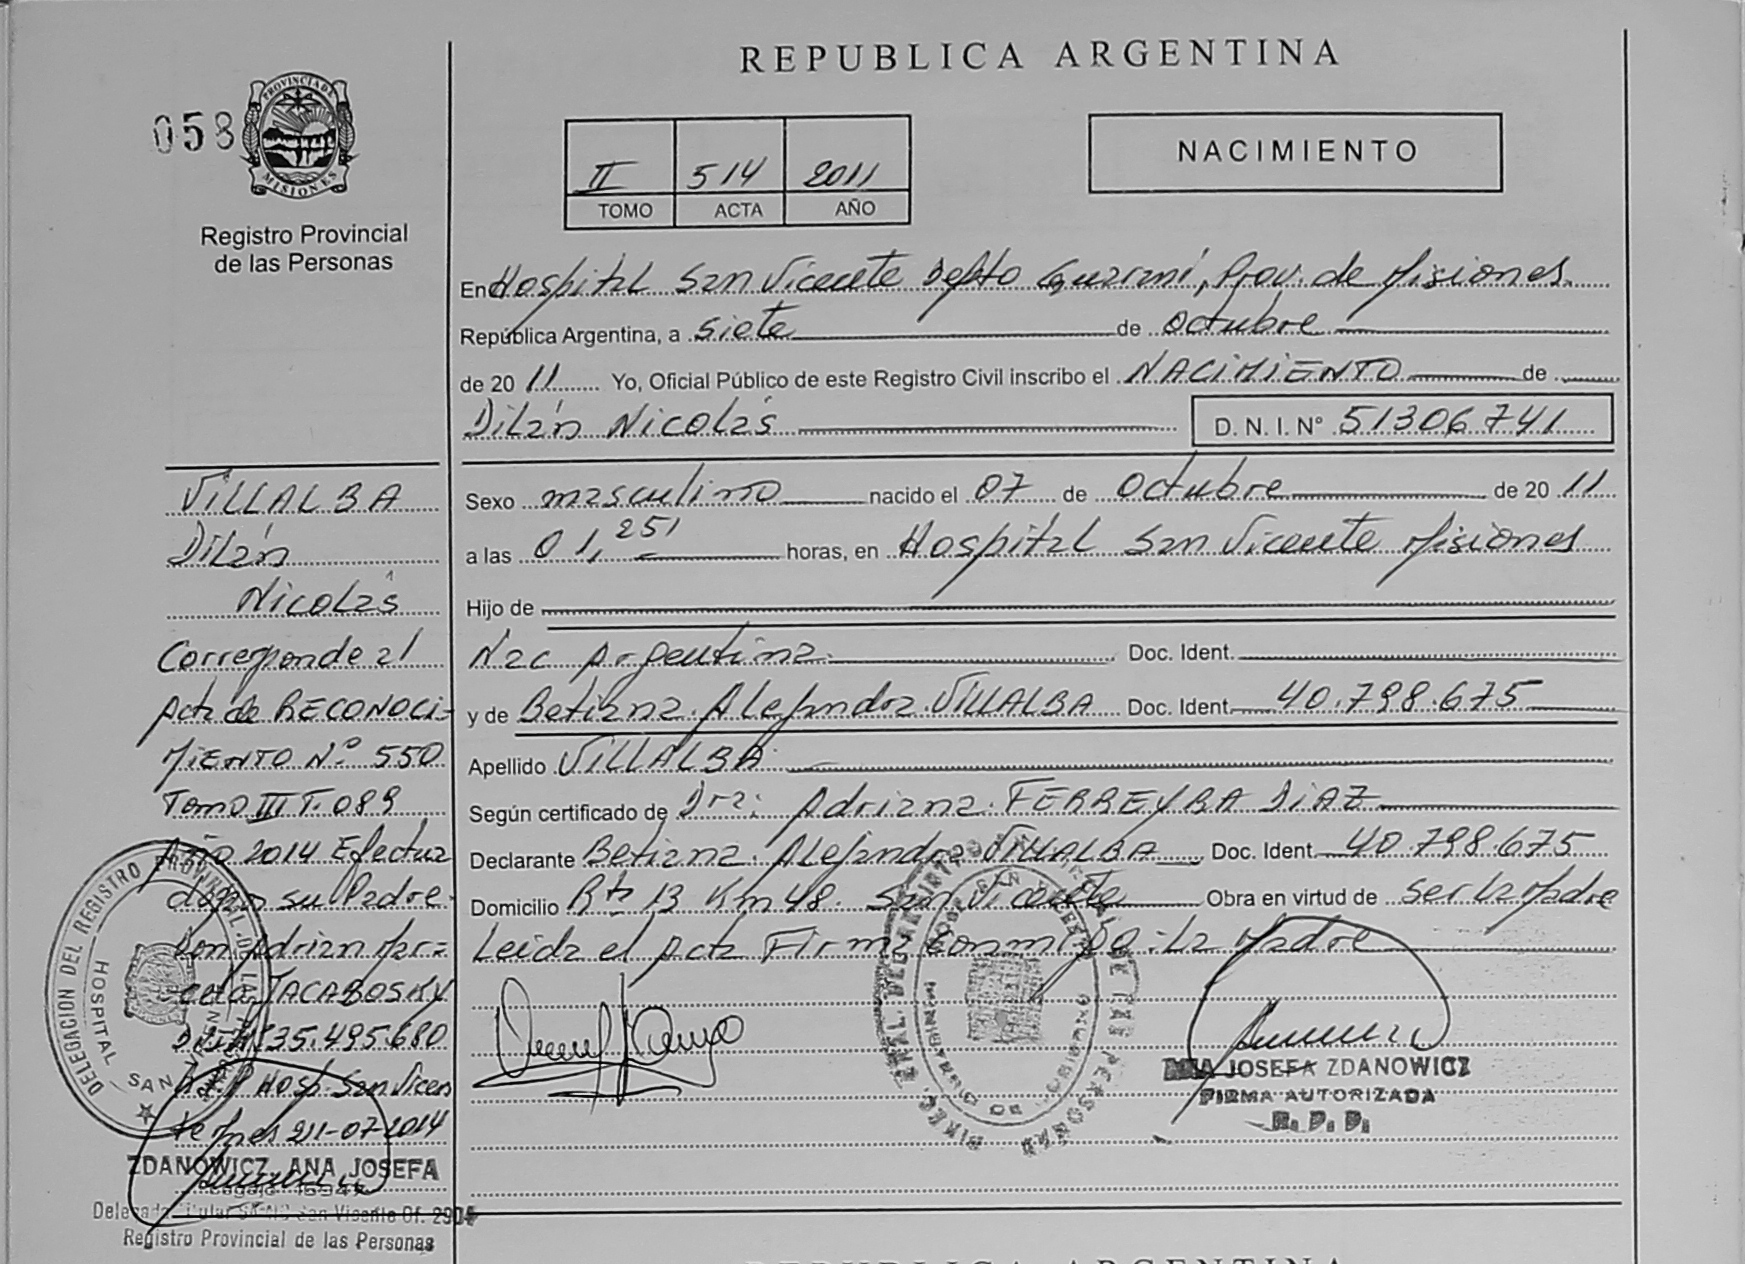 REPUBLICA ARGENTINA
058
PROVINCIA DE MISIONES
Registro Provincial
de las Personas
II 514 2011
TOMO ACTA AÑO
NACIMIENTO
En Hospital San Vicente Depto Guaraní, Prov. de Misiones.
República Argentina, a siete de octubre
de 2011 Yo, Oficial Público de este Registro Civil inscribo el NACIMIENTO de
Dilán Nicolás D. N. I. Nº 51306741
Sexo masculino nacido el 07 de Octubre de 2011
a las 01,25' horas, en Hospital San Vicente Misiones
Hijo de
Nac Argentina. Doc. Ident.
y de Betiana Alejandra VILLALBA Doc. Ident. 40.798.675
Apellido VILLALBA
Según certificado de Dra: Adriana FERREYRA DIAZ
Declarante Betiana Alejandra VILLALBA Doc. Ident. 40.798.675
Domicilio Rta 13 Km 48. San Vicente Obra en virtud de ser la Madre
Leida el Acta Firma conmigo: La Madre
VILLALBA
Dilán
Nicolás
Corresponde al
Acta de RECONOCI-
MIENTO Nº 550
Tomo III T. 089
Año 2014 Efectua
do por su Padre.
Don Adrian Marce
celo JACABOSKY
35.495.680
Hosp. San Vicen
te Mnes 21-07-2014
DELEGACION DEL REGISTRO PROVINCIAL DE LAS
HOSPITAL SAN VICENTE
ZDANOWICZ, ANA JOSEFA
San Vicente Of. 2904
Registro Provincial de las Personas
JOSEFA ZDANOWICZ
FIRMA AUTORIZADA
R. P. P.
REPUBLICA ARGENTINA